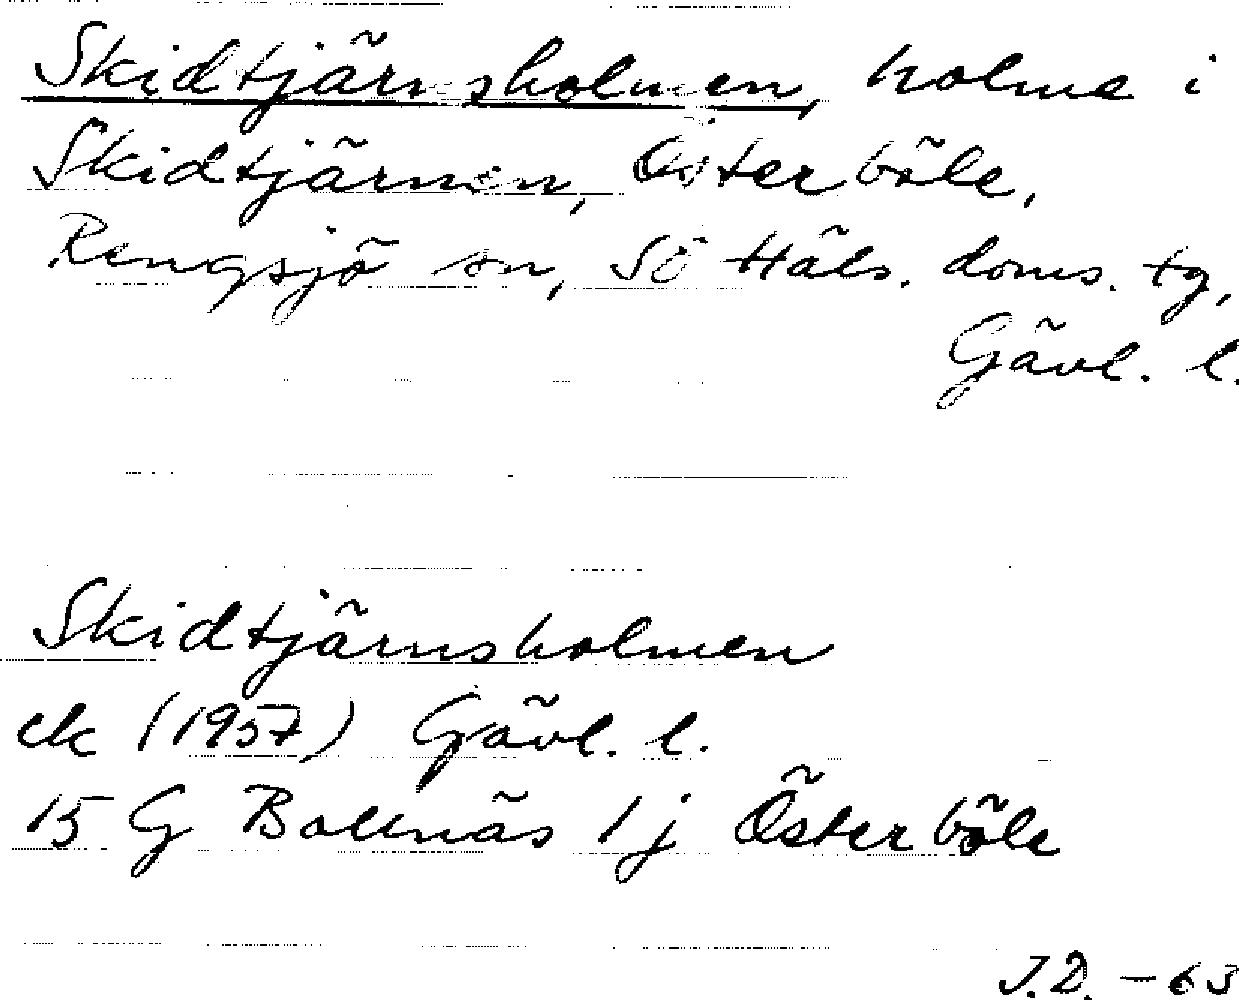 Skidtjärnsholmen, holme i
Skidtjärnen, Österböle,
Rengsjö sn, SÖ Häls. doms. tg,
Gävl. l.
Skidtjärnsholmen
ek (1957) Gävl. l.
15 G Bollnäs 1 j Österböle
J.D. - 63